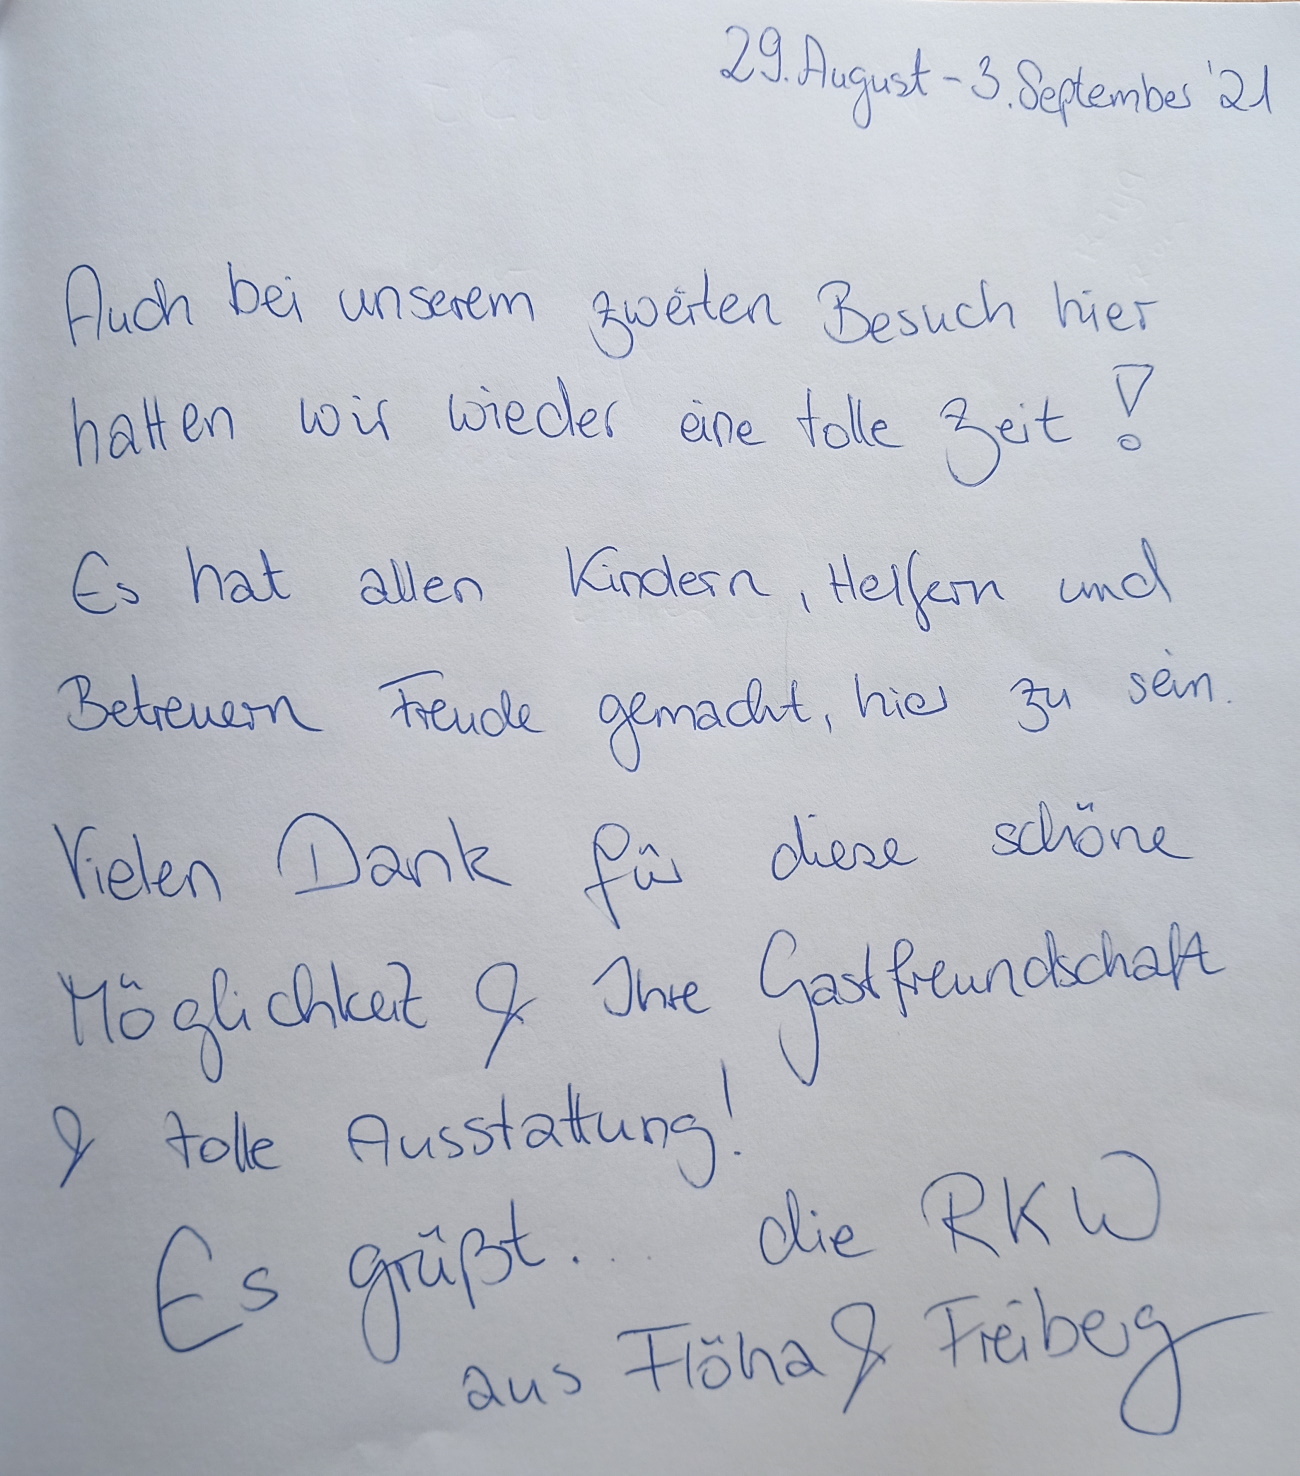 29. August - 3. September '21
Auch bei unserem zweiten Besuch hier
hatten wir wieder eine tolle Zeit!
Es hat allen Kindern, Helfern und
Betreuern Freude gemacht, hier zu sein.
Vielen Dank für diese schöne
Möglichkeit & Ihre Gastfreundschaft
& tolle Ausstattung!
Es grüßt.... die RKW
aus Flöha & Freiberg